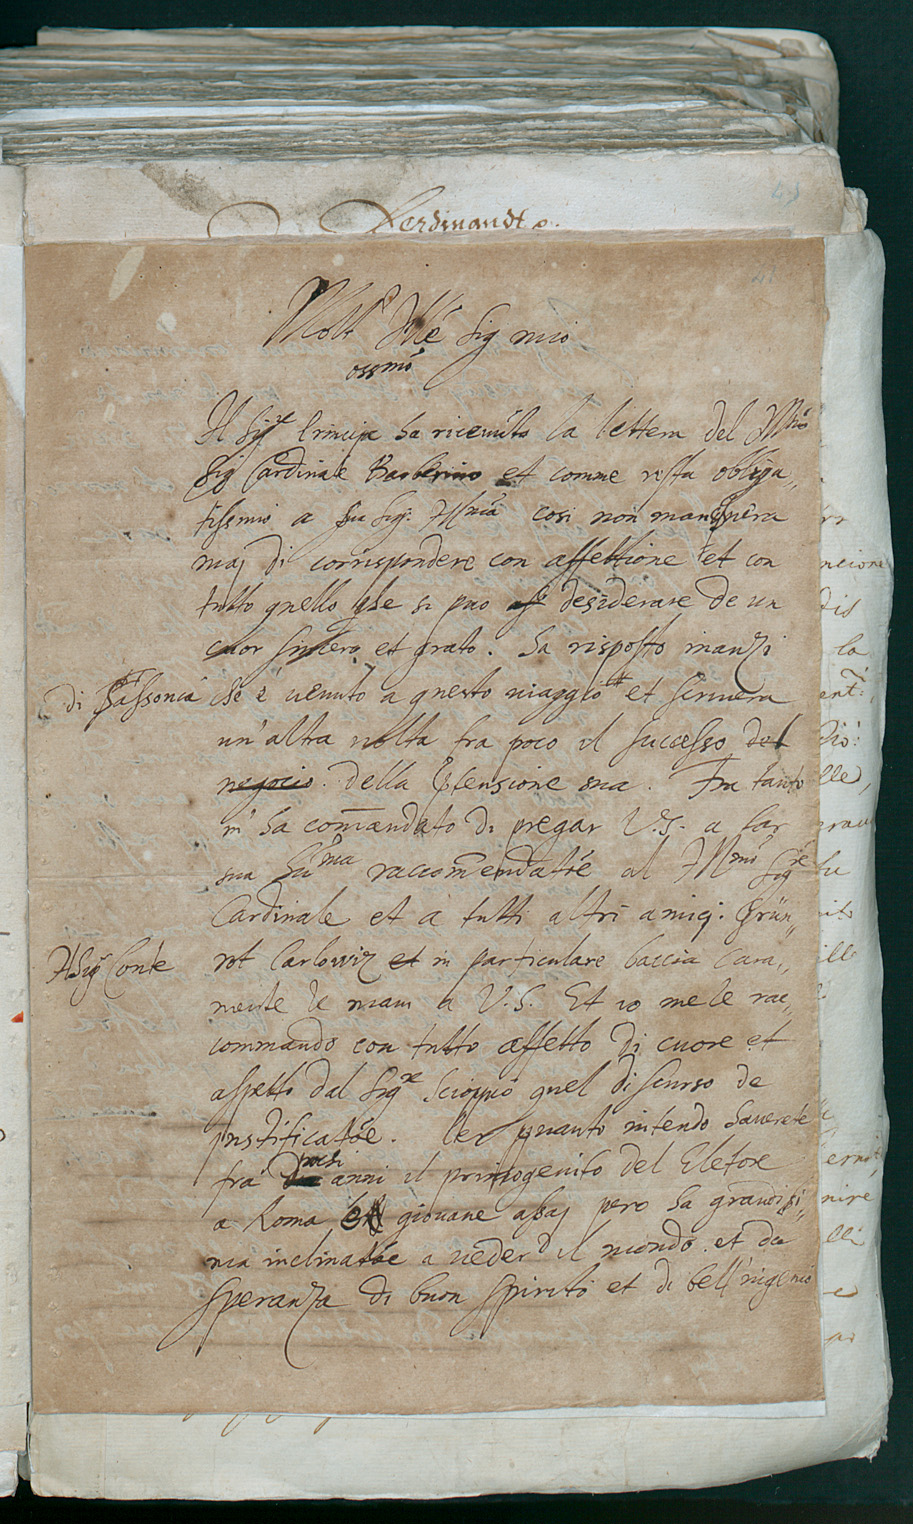 49
Ferdinandt
Molt Ill.re Sig mio
oss.mo
Il Sig.r Principe ha ricevuto la lettera del Ill.mo
Sig Cardinale Barberino et comme resta obliga„
tissimo a sua Sig. Ill.ma cosi non manchera
maj di corrispondere con affettione et con
tutto quello che si puo desiderare de un
cuor sincero et grato. ha risposto inanzi
di Sassonia
che é venuto a questo viaggio et scrivera
un'altra volta fra poco il successo del
negocio. della pensione sua. Fra tanto
m' ha comandato di pregar V.S. a far
sua raccomendatoe al Ill.mo Sig.re
Cardinale et a tutti altri amici. Grün„
rot Carlowiz et in particulare baccia cara„
Il Sig.r Conte
mente le mani a V.S. Et io me le rac„
commando con tutto affetto di cuore et
aspetto dal Sig.re Scioppio quel discurso de
justificatoe. Per quanto intendo haverete
fra anni il primogenito del Eletore
a Roma giovane assaj pero ha grandissi„
ma inclinatoe a veder il mondo. et da
speranza di buon spirito et di bell'ingenio